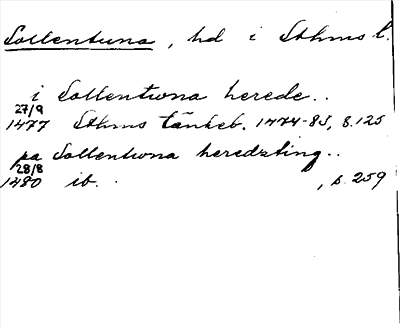 Sollentuna, hd i Sthms l.
i Sollentwna herede..
27/9
1477 Sthms tänkeb. 1474-83, s. 125
pa Sollentwna heredzting..
28/8
1480 ib. , s. 259